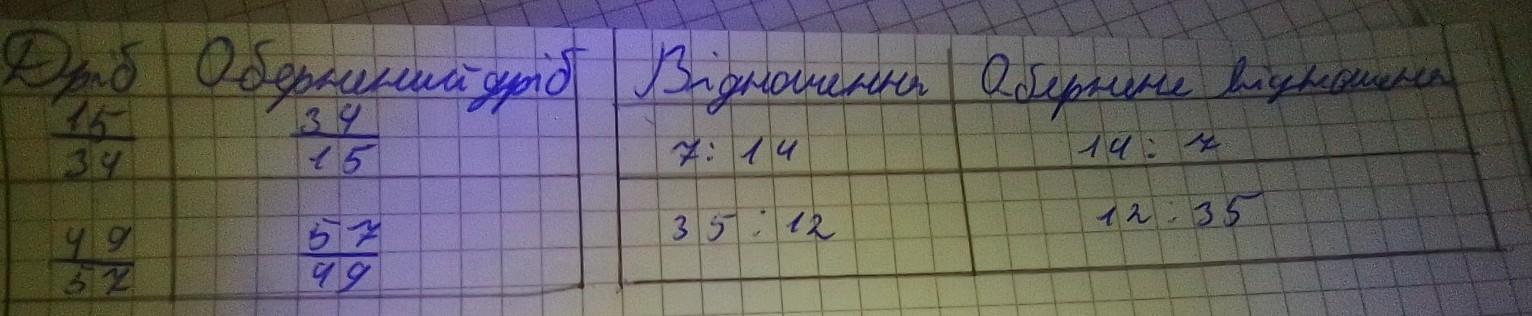 Дріб Обернений дріб Відношення Обернене відношення
15/34 34/15 7 : 14 14 : 7
49/57 57/49 35 : 12 12 : 35